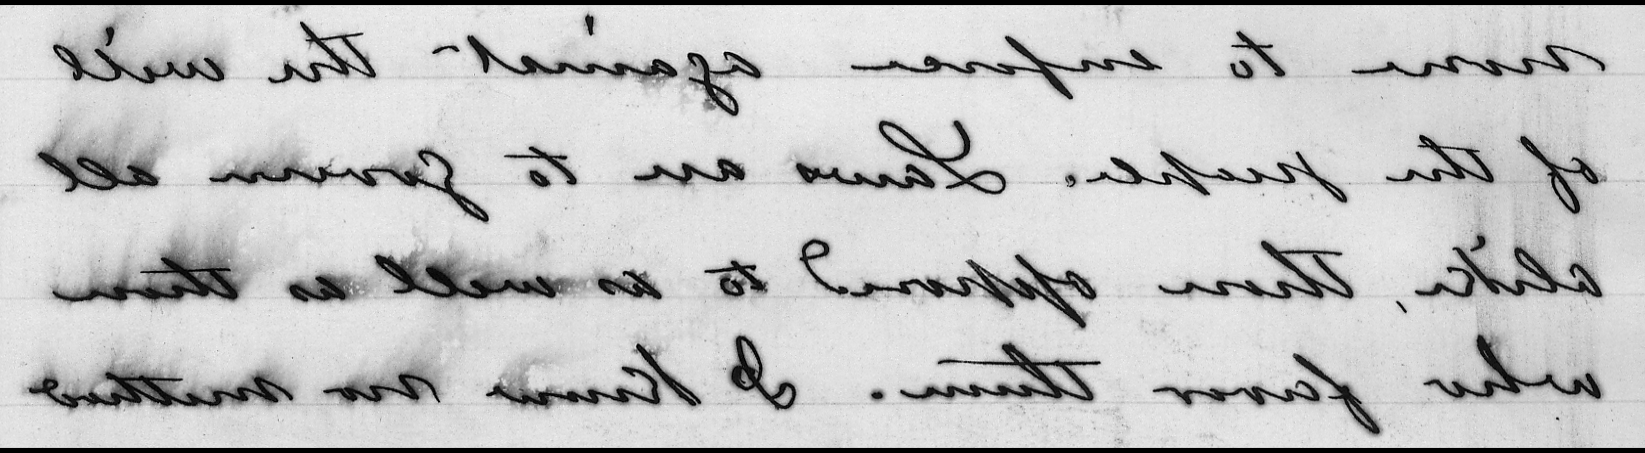 more to enforce against the will
of the people. Laws are to govern all
alike, those opposed to as well as those
who favor them. I know no method